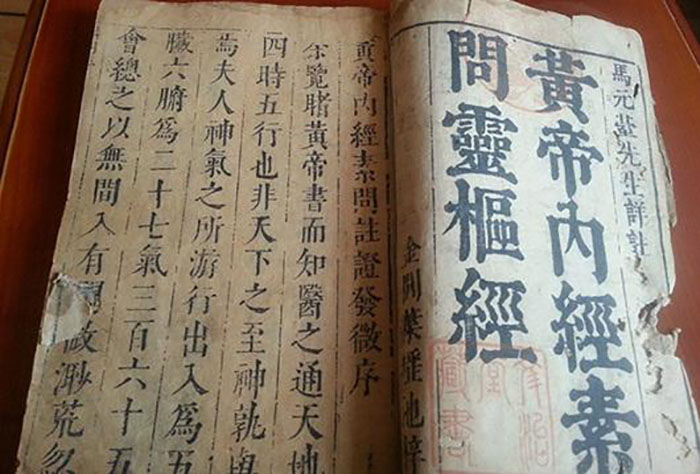 馬元臺先生詳註
黃帝內經素
問靈樞經
金閶葉瑤池梓
黃帝內經素問註證發微序
余覽睹黃帝書而知醫之通天地
四時五行也非天下之至神孰與
焉夫人神氣之所游行出入為五
臟六腑為二十七氣三百六十五
會總之以無間入有間故渺荒忽
藏書